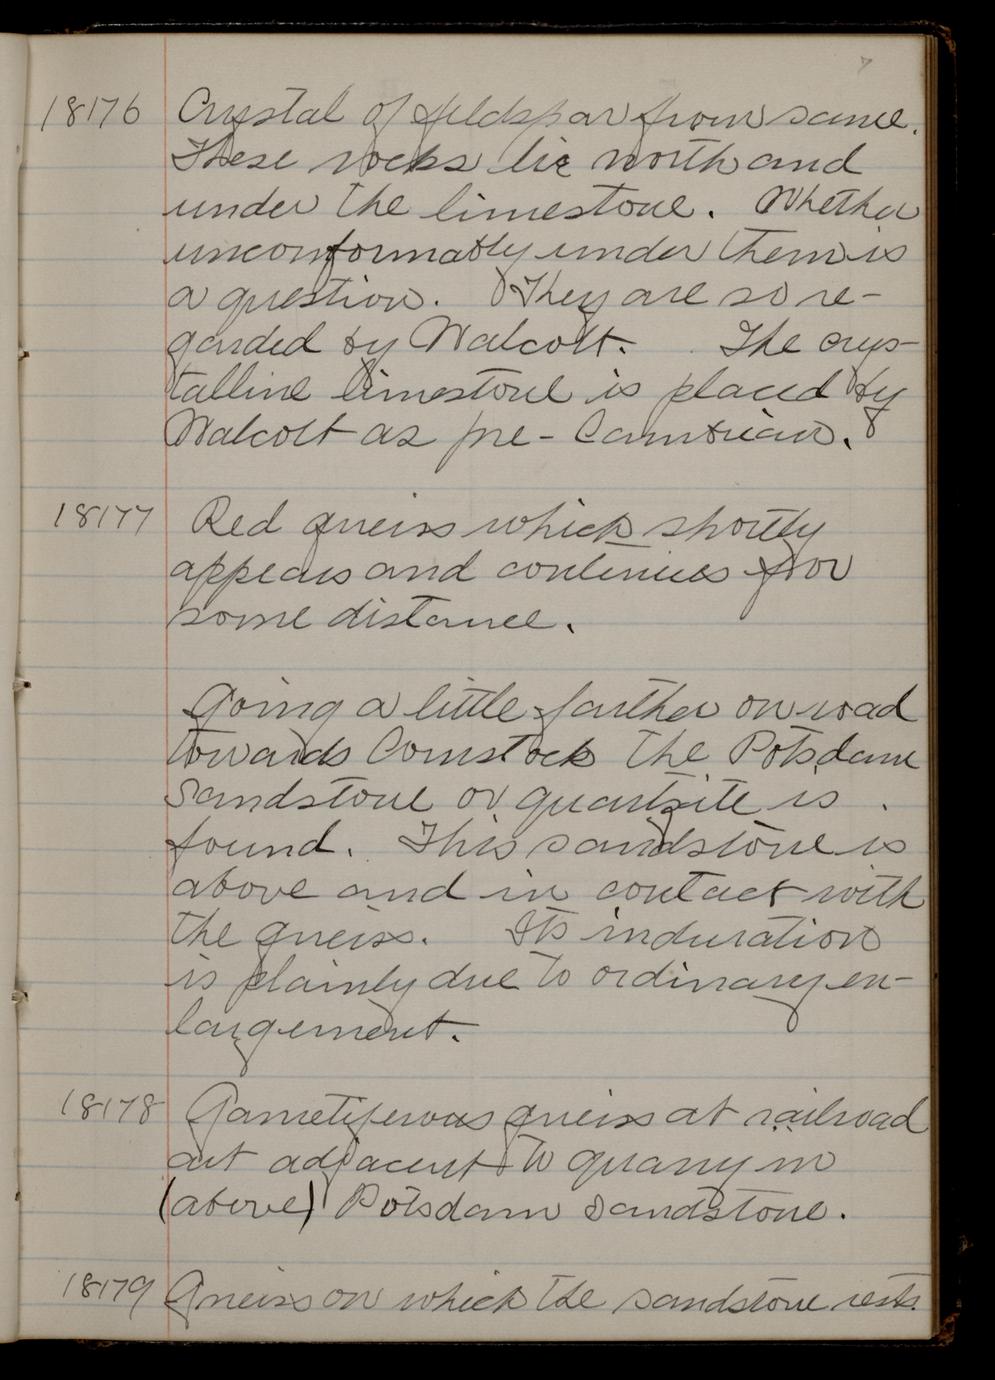 7
18176 Crystal of feldspar from same.
These rocks lie north and
under the limestone. Whether
unconformably under them is
a question. They are so re-
garded by Walcott. The crys-
talline limestone is placed by
Walcott as pre-Cambrian.
18177 Red gneiss which shortly
appears and continues for
some distance.
Going a little farther on road
towards Comstock the Potsdam
Sandstone or quartzite is
found. This sandstone is
above and in contact with
the gneiss. Its induration
is plainly due to ordinary en-
largement.
18178 Garnetiferous gneiss at railroad
cut adjacent to quarry in
(above) Potsdam Sandstone.
18179 Gneiss on which the sandstone rests.